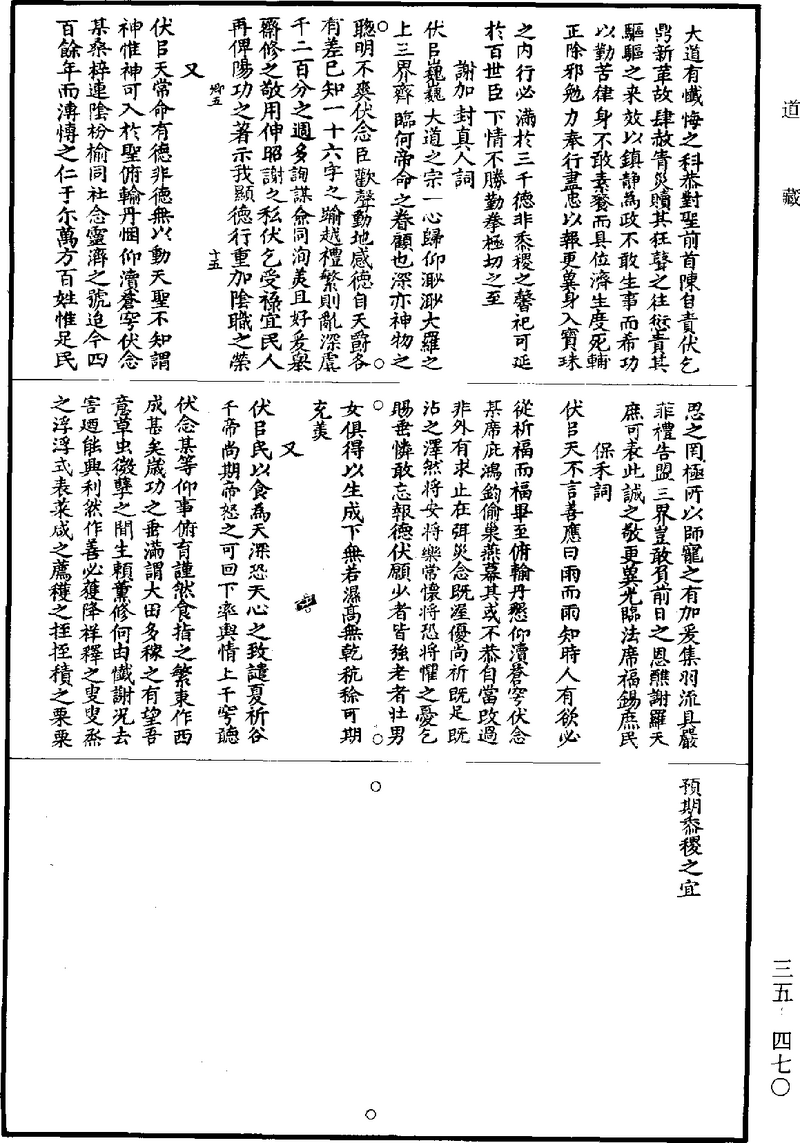 道藏
大道有懺悔之科恭對聖前首陳自責伏乞
鼎新革故肆赦眚災贖其狂瞽之往愆責其
驅驅之來效以鎮靜為政不敢生事而希功
以勤苦律身不敢素餐而具位濟生度死輔
正除邪勉力奉行盡忠以報更冀身入寶珠
之內行必滿於三千德非黍稷之馨祀可延
於百世臣下情不勝勤拳極切之至
謝加封真人詞
伏㠯巍巍大道之宗一心歸仰渺渺大羅之
上三界齊臨何帝命之眷顧也深亦神物之
聰明不爽伏念臣歡聲動地感德自天爵各
有差已知一十六字之踰越禮繁則亂深虞
千二百分之週多詢謀僉同洵美且好爰舉
齋修之敬用伸昭謝之私伏乞受祿宜民人
再俾陽功之著示我顯德行重加陰職之榮
又
伏㠯天常命有德非德無以動天聖不知謂
神惟神可入於聖俯輸丹悃仰瀆蒼穹伏念
某桑梓連陰枌榆同社念靈濟之號迨今四
百餘年而溥博之仁于尔萬方百姓惟足民
恩之罔極所以師寵之有加爰集羽流具嚴
菲禮告盟三界豈敢負前日之恩醮謝羅天
庶可表此誠之敬更冀光臨法席福錫庶民
保禾詞
伏㠯天不言善應曰雨而雨知時人有欲必
從祈福而福畢至俯輸丹懇仰瀆蒼穹伏念
某席庇鴻鈞偷巢燕幕其或不恭自當改過
非外有求止在弭災念既渥優尚祈既足既
沾之澤然將安將樂常懷將恐將懼之憂乞
賜垂憐敢忘報德伏願少者皆強老者壯男
女俱得以生成下無若濕高無乾秔稌可期
充羙
又
伏㠯民以食為天深恐天心之致譴夏祈谷
千帝尚期帝怒之可回下率輿情上干穹聽
伏念某等仰事俯育謹然食指之繁東作西
成甚矣歲功之垂滿謂大田多稼之有望吾
意草虫微孽之間生賴薰修何由懺謝況去
害迺能興利然作善必獲降祥釋之叟叟烝
之浮浮式表菜咸之薦穫之挃挃積之栗栗
預期黍稷之宜
三五·四七〇